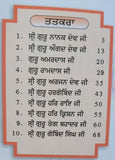 ਤਤਕਰਾ
1. ਸ੍ਰੀ ਗੁਰੂ ਨਾਨਕ ਦੇਵ ਜੀ 3
2. ਸ੍ਰੀ ਗੁਰੂ ਅੰਗਦ ਦੇਵ ਜੀ 5
3. ਗੁਰੂ ਅਮਰਦਾਸ ਜੀ 7
4. ਗੁਰੂ ਰਾਮਦਾਸ ਜੀ 9
5. ਸ੍ਰੀ ਗੁਰੂ ਅਰਜਨ ਦੇਵ ਜੀ
6. ਸ੍ਰੀ ਗੁਰੂ ਹਰਗੋਬਿੰਦ ਜੀ
7. ਸ੍ਰੀ ਗੁਰੂ ਹਰਿ ਰਾਇ ਜੀ 50
8. ਸ੍ਰੀ ਗੁਰੂ ਹਰਿ ਕ੍ਰਿਸ਼ਨ ਜੀ
9. ਸ੍ਰੀ ਗੁਰੂ ਤੇਗ ਬਹਾਦਰ ਜੀ 60
10. ਸ੍ਰੀ ਗੁਰੂ ਗੋਬਿੰਦ ਸਿੰਘ ਜੀ 68